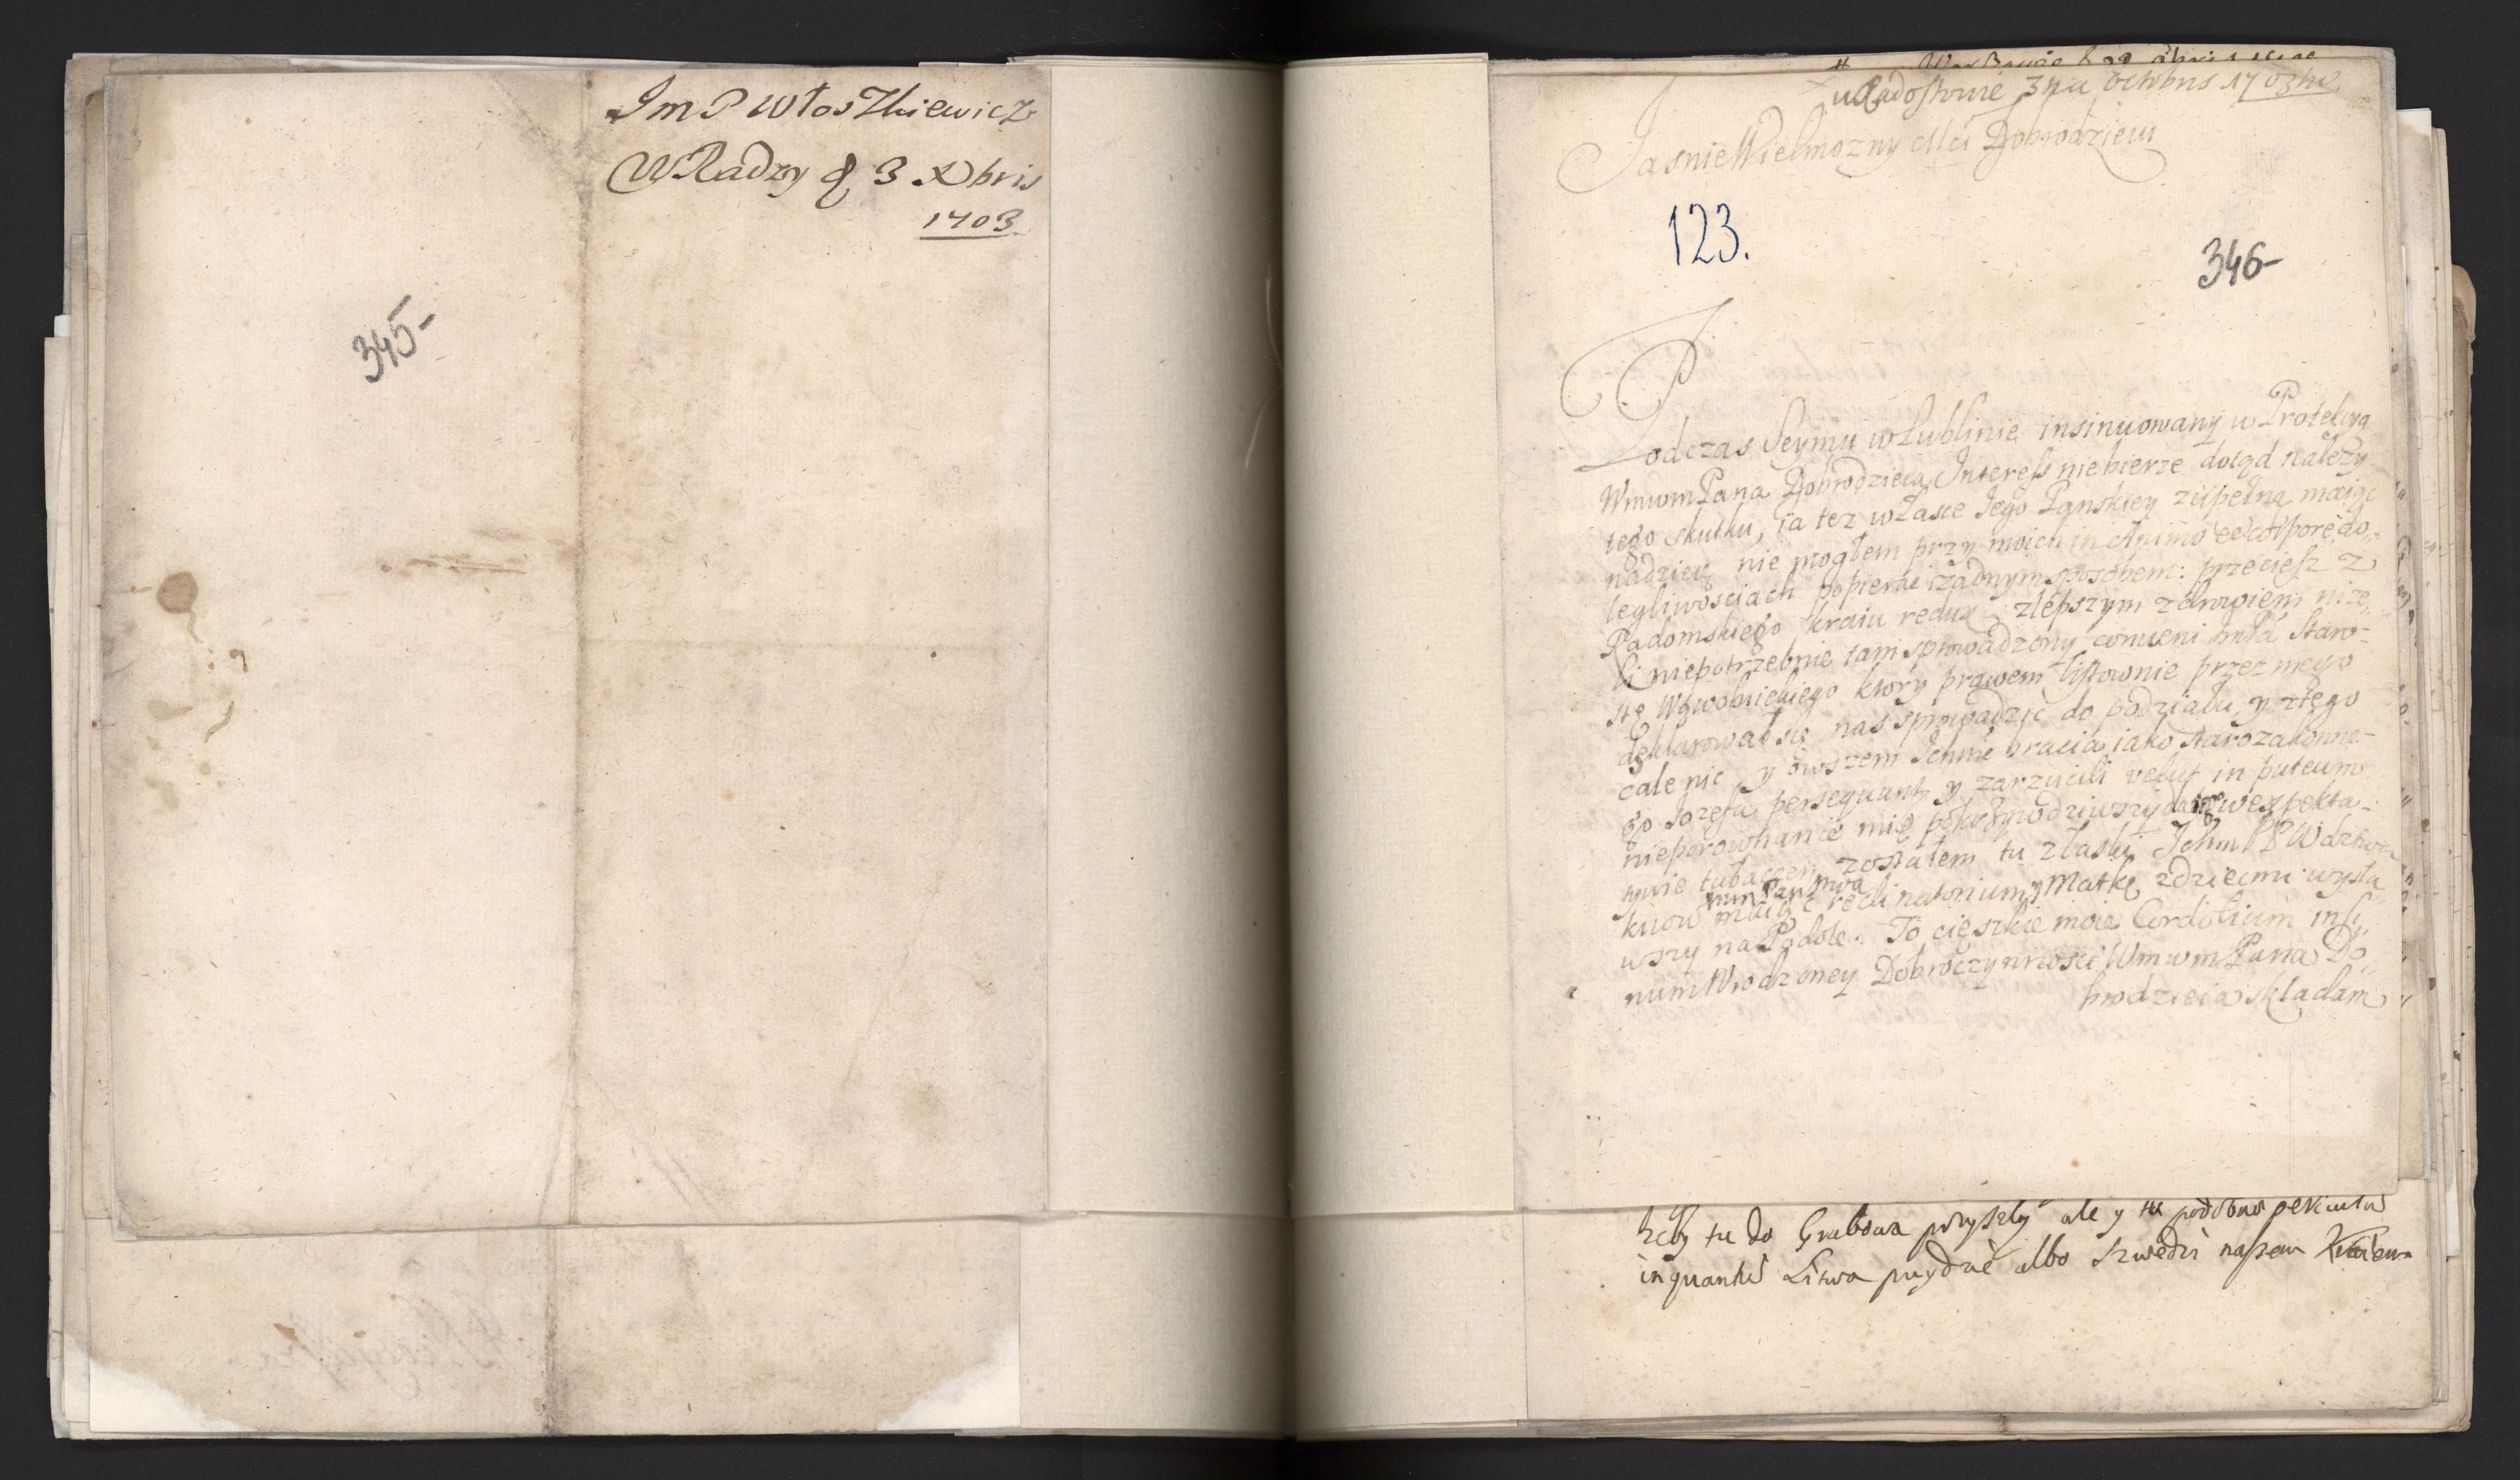 Im P WłosZkiewicz
W Radzy d 3 Xbris
1703
345-
w Radostowie 3tia octobris 1703tio
Jasnie Wielmozny Mci Dobrodzieiu
123.
346-
Podczas Seymu w Lublinie insinuowany w Protekcyą
WmwmPana Dobrodzieia Interess niebierze dotąd należy
tego skutku, ia tez w łasce Jego Panskiey zupełną maiąc
nadzieię nie mogłem przy moich in Animo et Corpore do,
legliwosciach popierac żadnym sposobem: przeciesz z
Radomskiego kraiu redux, z lepszym zdrowiem niże,
li niepotrzebnie tam sprowadzony Staro-
stę który prawem listownie przez mego
deklarował się nas sprowadzić do podziału, y z tego
cale nic, y owszem Ichmć bracia iako starozakonne-
go Jozefa persequunt, y zarzucili velut in puteum
nieporownanie mię pokrzywdziwszy expekta-
tywie zostałem tu z łaski Ichm PP
maiąc reclinatorium, y Matkę z dziecmi wysła
wszy na Podole. To cięszkie moie Cordolium in si,
num Wrodzoney Dobroczynnosci WmwmPana Do,
brodzieia składam
zeby tu do Grabowa przyszły ale y tu podobno periculum
inquantum Litwa przydzie albo Szwedzi naszem